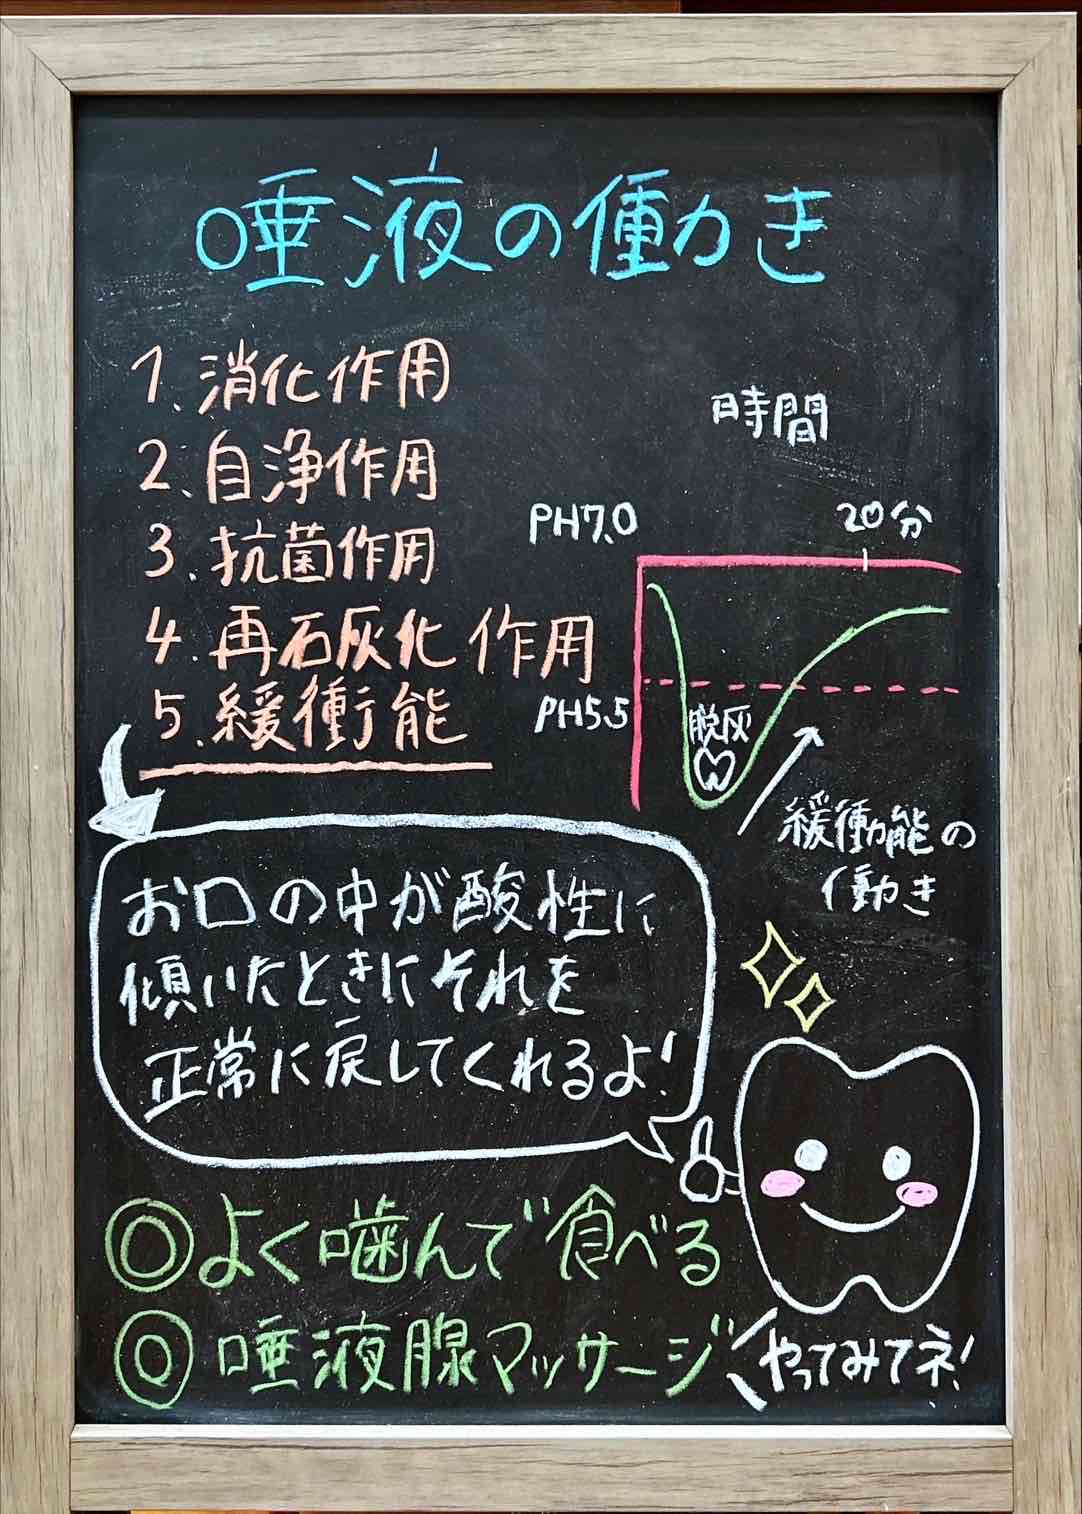 唾液の働き
1. 消化作用
2. 自浄作用
3. 抗菌作用
4. 再石灰化作用
5. 緩衝能
時間
PH7.0
20分
PH5.5
脱灰
緩衝能の
働き
お口の中が酸性に
傾いたときにそれを
正常に戻してくれるよ!
◎よく噛んで食べる
◎唾液腺マッサージ
やってみてネ!